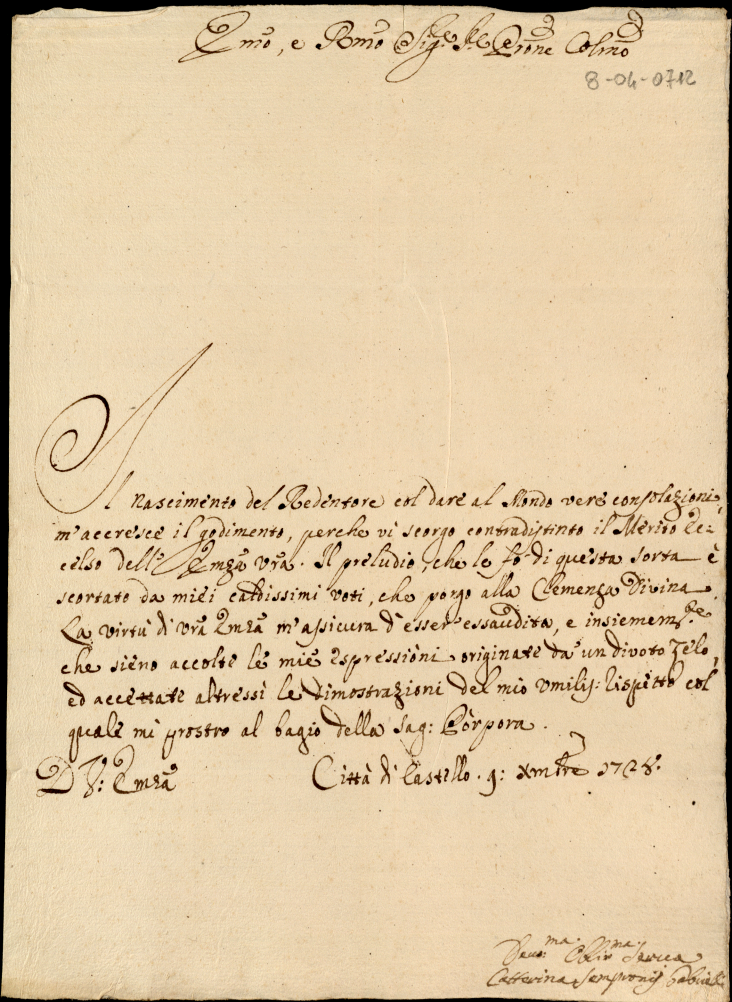 Emo, e Rmo Sig.e Sig.e Prone Colmo
8-04-0712
Il nascimento del Redentore col dare al Mondo vere consolazioni,
m'accresce il godimento, perche vi scorgo contradistinto il Merito Ec=
celso dell' Emza vra. Il preludio, che le fo di questa sorta è
scortato da miei caldissimi voti, che porgo alla Clemenza Divina.
La virtù di vra Emza m'assicura d'esser essaudita, e insiemem.te
che sieno accolte le mie espressioni originate da un divoto zelo,
ed accettate altressì le dimostrazioni del mio vmiliss: rispetto col
quale mi prostro al bagio della Sag: Pòrpora.
D V: Emza
Città di Castello. 9: Xmbre 1728.
Deuo:ma Obli:ma Serua
Catterina Sempronij Gabrielli